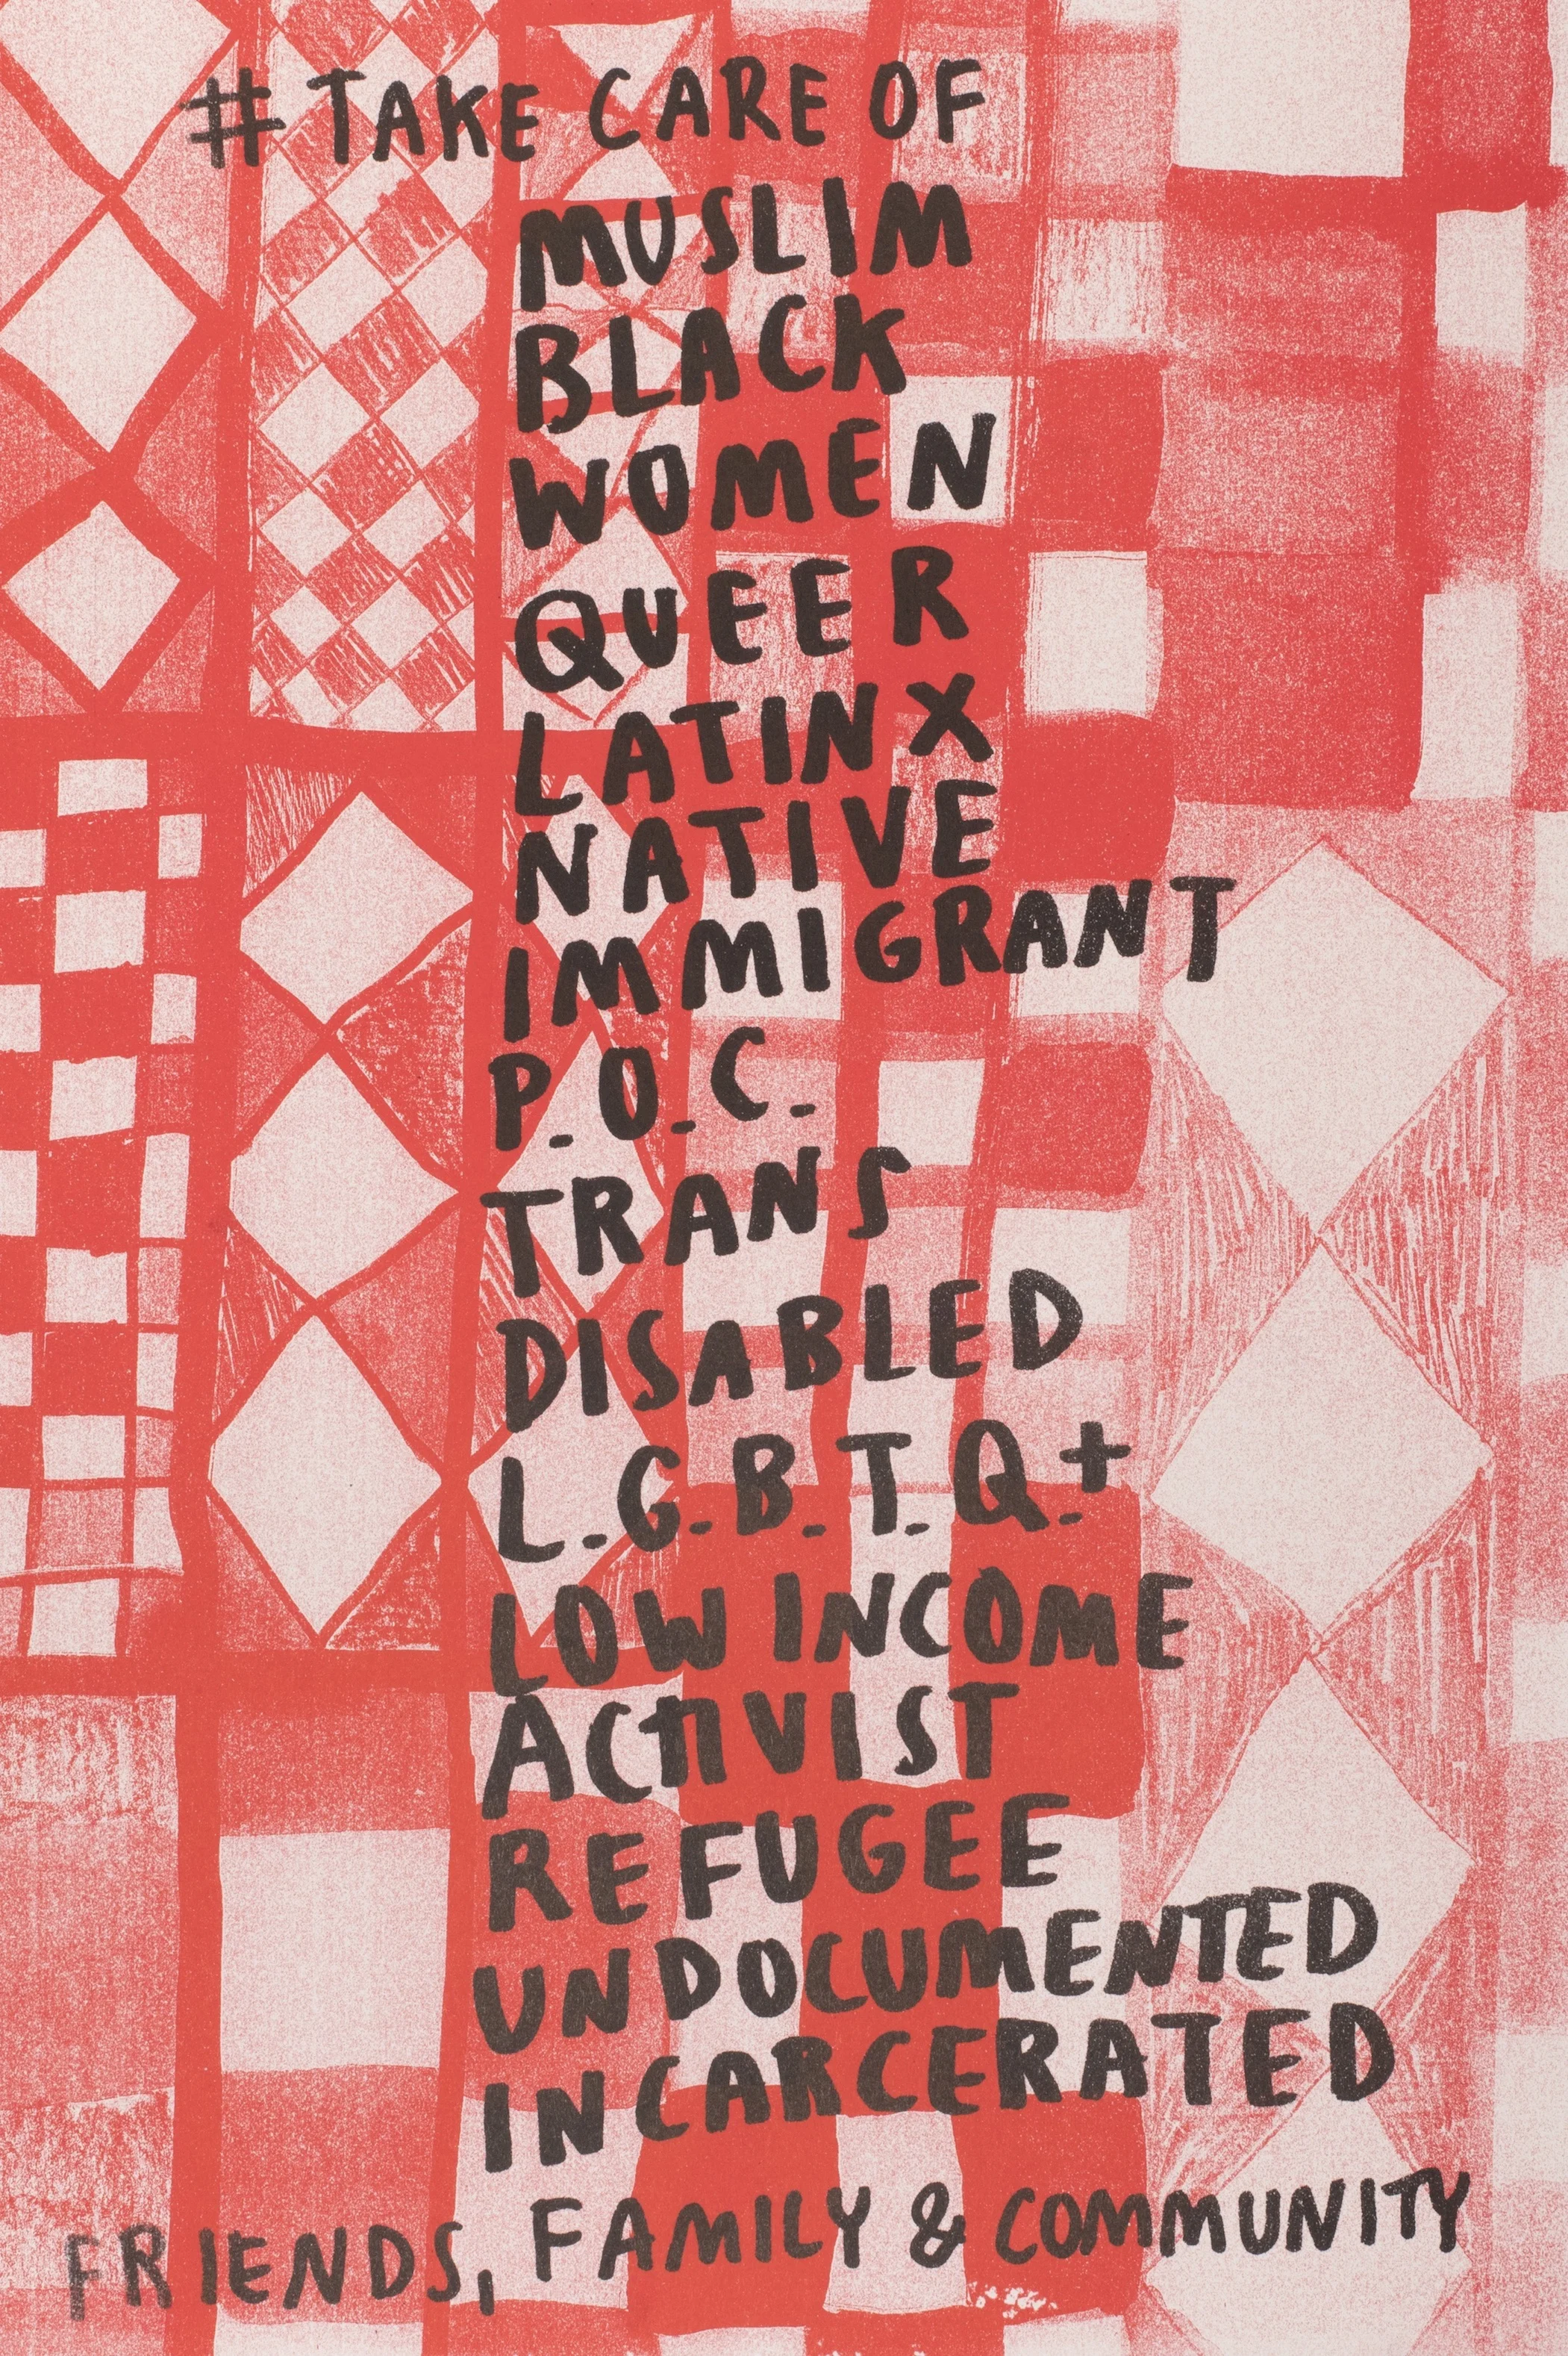 # TAKE CARE OF
MUSLIM
BLACK
WOMEN
QUEER
LATINX
NATIVE
IMMIGRANT
P.O.C.
TRANS
DISABLED
L.G.B.T.Q.+
LOW INCOME
ACTIVIST
REFUGEE
UNDOCUMENTED
INCARCERATED
FRIENDS, FAMILY & COMMUNITY